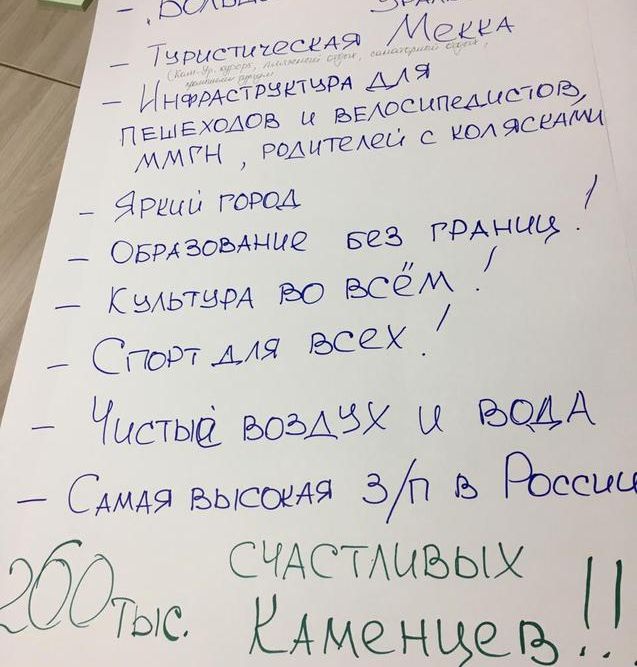 - Туристическая Мекка
- Инфраструктура для
пешеходов и велосипедистов,
ммгн, родителей с колясками
- Яркий город
- Образование без границ!
- Культура во всём!
- Спорт для всех!
- Чистый воздух и вода
- Самая высокая з/п в России
260 тыс. счастливых
Каменцев!!